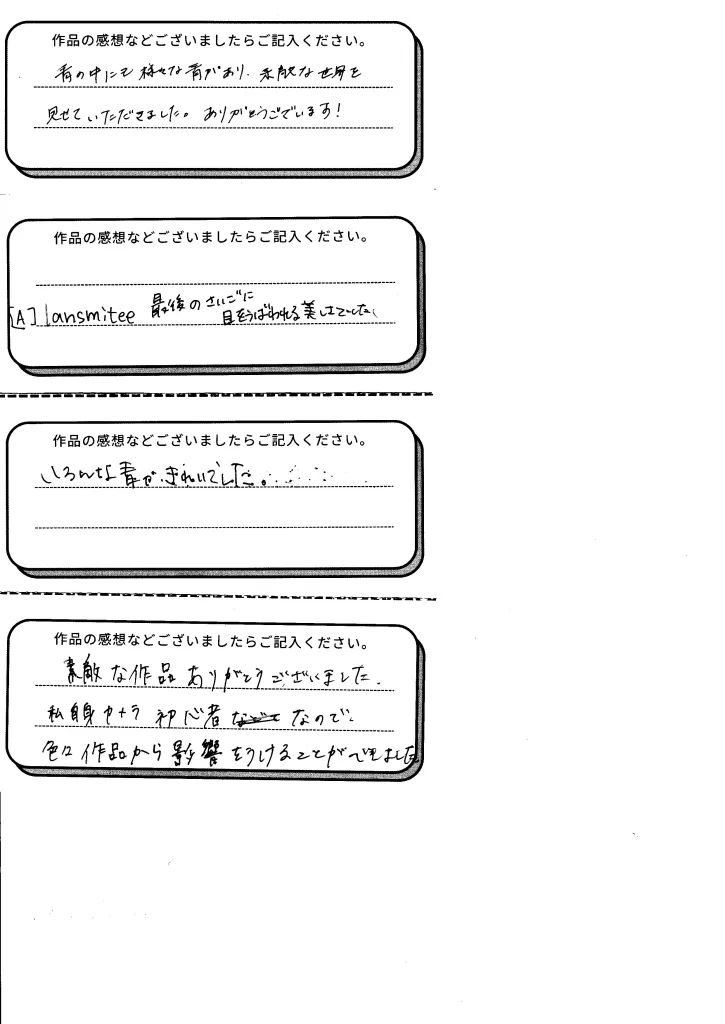 作品の感想などございましたらご記入ください。
青の中にも様々な青があり、素敵な世界を
見せていただきました。ありがとうございます!
作品の感想などございましたらご記入ください。
[A] lansmitee 最後のさいごに
目をうばわれる美しさでした、
作品の感想などございましたらご記入ください。
いろんな青が、きれいでした。
作品の感想などございましたらご記入ください。
素敵な作品ありがとうございました。
私自身カメラ初心者なので、
色々作品から影響をうけることができました